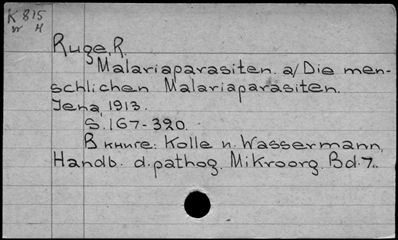 K 815
н
Ruge, R.
Malariaparasiten. a/ Die men-
schlichen Malariaparasiten.
Jena, 1913.
S. 167-390.
В книге: Kolle n. Wassermann,
Handb. d. pathog. Mikroorg. Bd. 7.